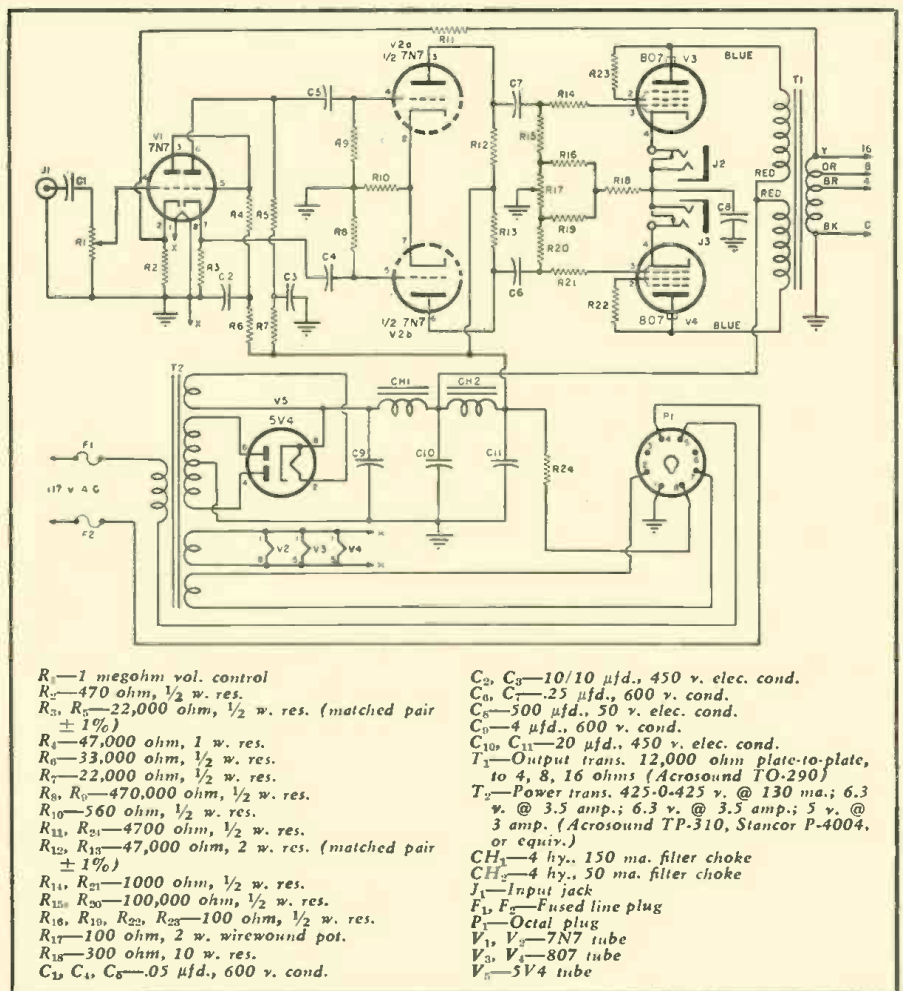 R11
V2a
1/2 7N7
3
807
V3
BLUE
T1
R23
C5
4
C7
R14
2
3
V1
7N7
3
6
R15
4
J1
C1
4
5
R9
8
R12
R16
J2
Y
16
OR
8
BR
4
RED
RED
R10
R17
R18
R1
R4
R5
C8
BK
C
2
1
8
7
X
R8
7
R13
R19
J3
R2
R3
C2
C3
C4
5
R20
4
X
R6
R7
C6
R21
3
2
1/2 7N7
V2b
6
R22
807
V4
BLUE
T2
V5
5V4
CH1
CH2
P1
F1
6
8
4
2
C9
C10
C11
R24
117 V A C
F2
1
V2
8
1
V3
5
1
V4
5
X
X
R1—1 megohm vol. control
R2—470 ohm, 1/2 w. res.
R3, R5—22,000 ohm, 1/2 w. res. (matched pair
± 1%)
R4—47,000 ohm, 1 w. res.
R6—33,000 ohm, 1/2 w. res.
R7—22,000 ohm, 1/2 w. res.
R8, R9—470,000 ohm, 1/2 w. res.
R10—560 ohm, 1/2 w. res.
R11, R24—4700 ohm, 1/2 w. res.
R12, R13—47,000 ohm, 2 w. res. (matched pair
± 1%)
R14, R21—1000 ohm, 1/2 w. res.
R15, R20—100,000 ohm, 1/2 w. res.
R16, R19, R22, R23—100 ohm, 1/2 w. res.
R17—100 ohm, 2 w. wirewound pot.
R18—300 ohm, 10 w. res.
C1, C4, C5—.05 µfd., 600 v. cond.
C2, C3—10/10 µfd., 450 v. elec. cond.
C6, C7—.25 µfd., 600 v. cond.
C8—500 µfd., 50 v. elec. cond.
C9—4 µfd., 600 v. cond.
C10, C11—20 µfd., 450 v. elec. cond.
T1—Output trans. 12,000 ohm plate-to-plate,
to 4, 8, 16 ohms (Acrosound TO-290)
T2—Power trans. 425-0-425 v. @ 130 ma.; 6.3
v. @ 3.5 amp.; 6.3 v. @ 3.5 amp.; 5 v. @
3 amp. (Acrosound TP-310, Stancor P-4004,
or equiv.)
CH1—4 hy., 150 ma. filter choke
CH2—4 hy., 50 ma. filter choke
J1—Input jack
F1, F2—Fused line plug
P1—Octal plug
V1, V2—7N7 tube
V3, V4—807 tube
V5—5V4 tube